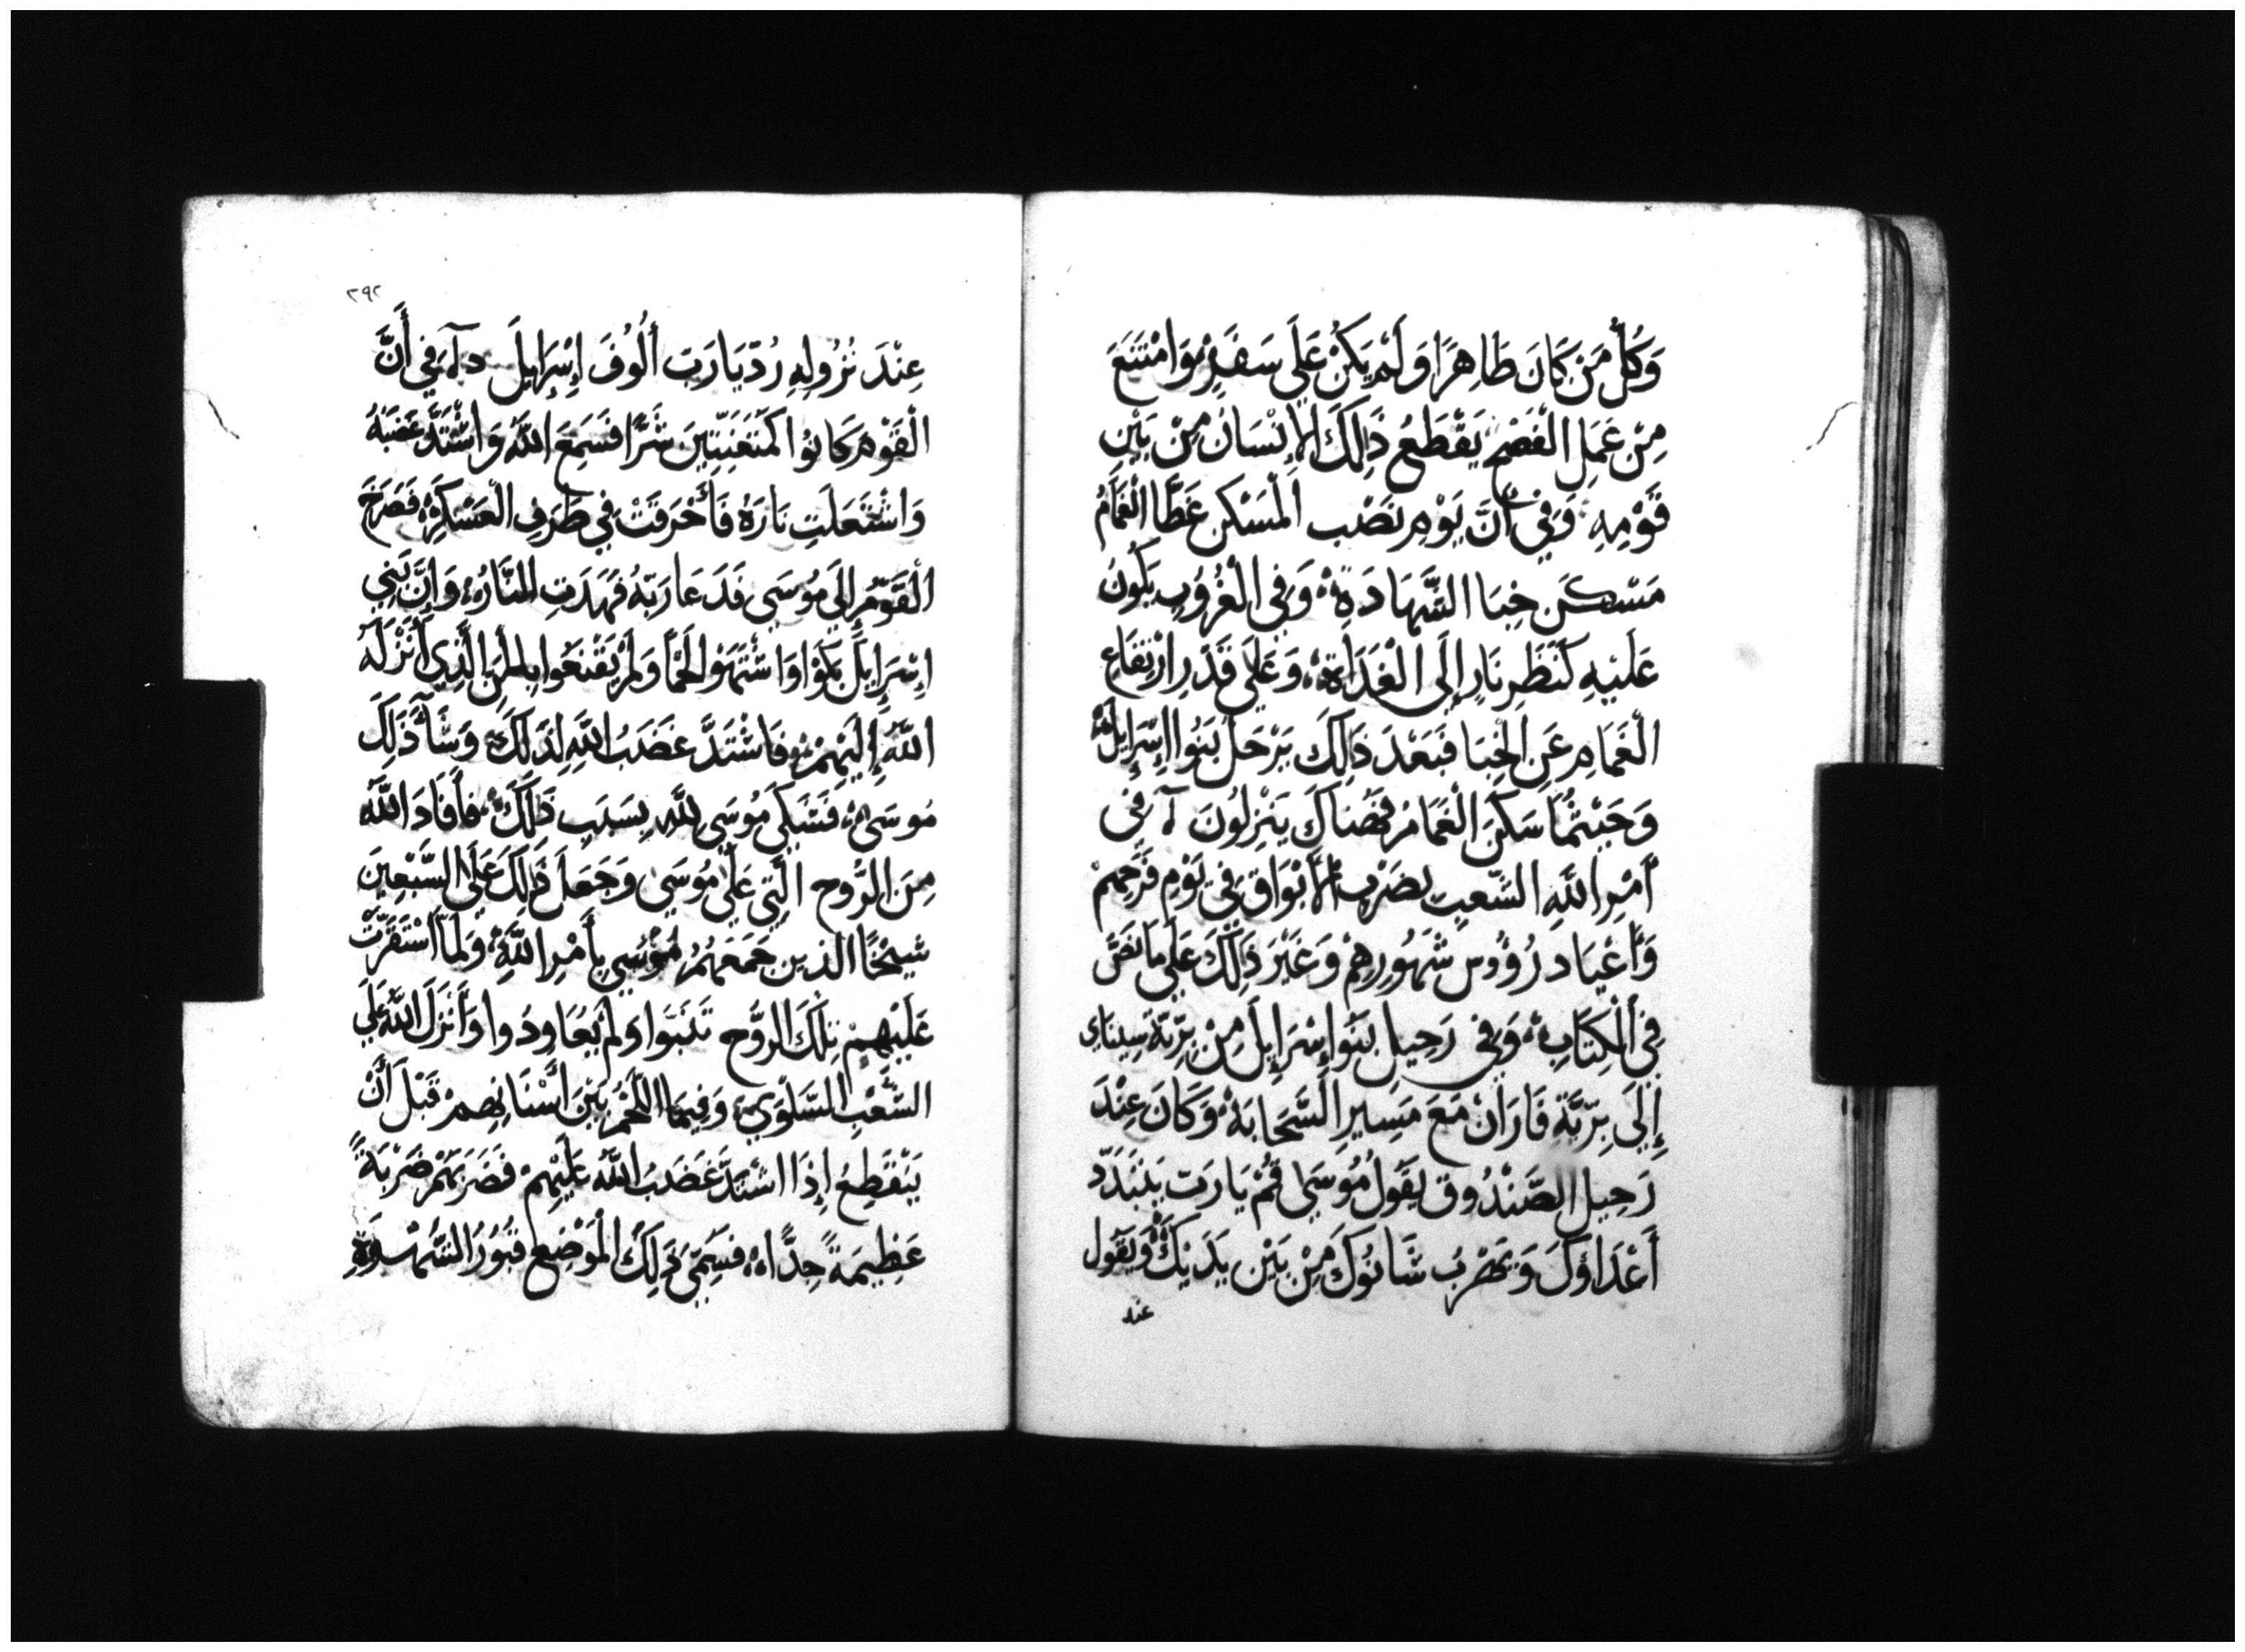 وَكُلُّ مَنْ كَانَ طَاهِرًا وَلَمْ يَكُنْ عَلَى سَفَرٍ وَامْتَنَعَ
مِنْ عَمَلِ الْفَصْحِ يَقْطَعُ ذَلِكَ الْإِنْسَانُ مِنْ بَيْنِ
قَوْمِهِ وَفِي أَنَّ يَوْمِ نَصْبِ الْمَسْكَنِ غَطَّا الْغَمَامُ
مَسْكَنَ خِبَا الشَّهَادَةِ وَفِي الْغُرُوبِ يَكُونُ
عَلَيْهِ كَنَظَرِ نَارٍ إِلَى الْغَدَاةِ وَعَلَى قَدَرِ ارْتِفَاعِ
الْغَمَامِ عَنِ الْخِبَا فَبَعْدَ ذَلِكَ يَرْحَلُ بَنُوا إِسْرَايِلَ
وَحَيْثُمَا سَكَنَ الْغَمَامُ فَهُنَاكَ يَنْزِلُونَ آ فِي
أَمْرِ اللَّهِ الشَّعبِ بِضَرْبِ الْأَبْوَاقِ فِي يَوْمِ فَرَحِهِمْ
وَأَعْيَادِ رُؤُوسِ شُهُورِهِمْ وَغَيْرَ ذَلِكَ عَلَى مَا نَصَّ
فِي الْكِتَابِ وَفِي رَحِيلِ بَنُوا إِسْرَايِلَ مِنْ بَرِّيَّةِ سِينَايِ
إِلَى بَرِّيَّةِ فَارَانْ مَعَ مَسِيرِ السَّحَابَةْ وَكَانَ عِنْدَ
رَحِيلِ الصَّنْدُوقِ يَقُولُ مُوسَى قُمْ يَا رَبِّ يَتَبَدَّدْ
أَعْدَاؤُكَ وَيَهْرُبُ شَانُوكَ مِنْ بَيْنِ يَدَيْكَ وَيَقُولُ
عند
٢٩٢
عِنْدَ نُزُولِهِ رُدّ يَا رَبِّ أُلُوفَ إِسْرَايِلَ فِي أَنَّ
الْقَوْمَ كَانُوا كَمُتَعَنِّتِينَ شَرًّا فَسَمِعَ اللَّهُ وَاشْتَدَّ غَضَبُهُ
وَاشْتَعَلَتِ نَارَهُ فَأَحْرَقَتْ فِي طَرَفِ الْعَسْكَرِ فَصَرَخَ
الْقَوْمُ إِلَى مُوسَى فَدَعَا رَبَّهُ فَهَدَتِ النَّارُ وَإِنَّ بَنِي
إِسْرَايِلَ بَكَوْا وَاشْتَهَوْا لَحْمًا وَلَمْ يَقْنَعُوا بِالْمَنِّ الَّذِي أَنْزَلَهُ
اللَّهُ إِلَيْهِمْ فَاشْتَدَّ غَضَبُ اللَّهِ لِذَلِكَ وَسَّأَ ذَلِكَ
مُوسَى فَشَكَى مُوسَى لِلَّهِ بِسَبَبِ ذَلِكَ فَأَفَادَ اللَّهُ
مِنَ الرُّوحِ الَّتِي عَلَى مُوسَى وَجَعَلَ ذَلِكَ عَلَى السَّبْعِينَ
شَيْخًا الذين جَمَعَهُمْ مُوسَى بِأَمْرِ اللَّهِ وَلَمَّا اسْتَقَرَّتْ
عَلَيْهِمْ تِلْكَ الرُّوحُ تَنَبَوَا وَلَمْ يُعَاوِدُوا وَأَنْزَلَ اللَّهُ عَلَى
الشَّعْبِ السَّلْوَى وَفِيمَا اللَّحْمُ بَيْنَ أَسْنَانِهِمْ قَبْلَ أَنْ
يَنْقَطِعَ إِذَا اشْتَدَّ غَضَبُ اللَّهِ عَلَيْهِمْ فَضَرَبَهُمْ ضَرْبَةً
عَظِيمَةً جِدًّا فَسُمِّيَ ذَلِكَ الْمَوْضِعُ قُبُورَ الشَّهْوَةِ